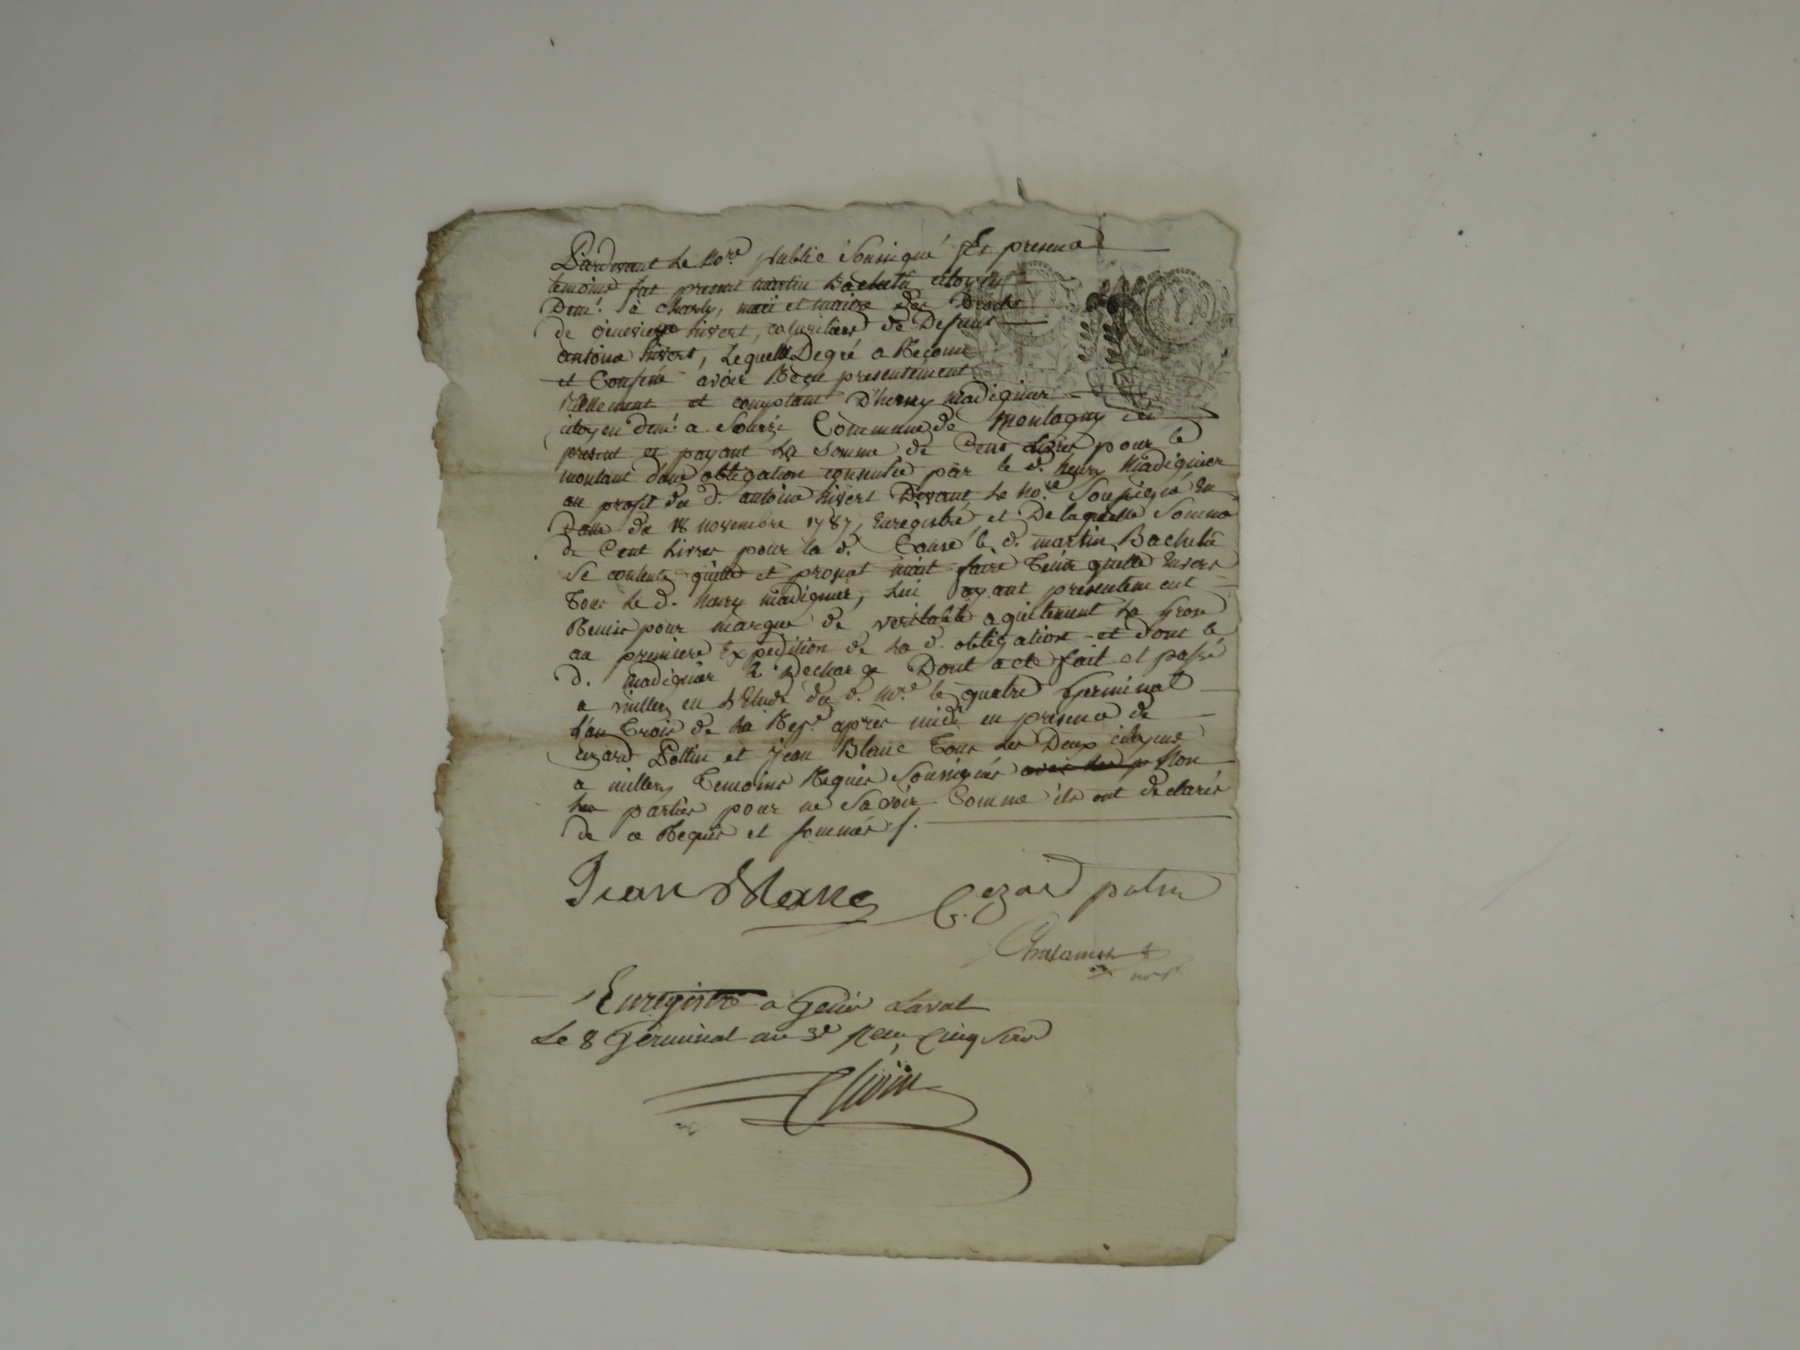 Pardevant Le No.re public soussigné Et presence
temoins fut present martin Bachelu citoyen
Dem.t à charly, mari et maitre des Droits
de genevieve hivert, cohéritiere de Defunt
antoine hivert, Lequel De gré a Reconnu
et Confessé avoir Reçu presentement
Réellement et comptant D'henry madignier
citoyen dem.t a Sourzi Commune de montagny ici
present et payant La somme de Cent Livres pour le
montant d'une obligation consentie par le d. henry Madignier
au profit du d. antoine hivert Devant Le no.re Soussigné En
Datte du 18 novembre 1787, Enregistré et De laquelle Somme
de Cent Livres pour la d. Cause le d. martin Bachelu
se contente quitte et promet faire Tenir quitte Envers
Tous Le d. henry madignier, Lui ayant presentement
Remis pour marque de veritable aquittement La grosse
au premiere Expedition de La d. obligation et dont le
d. madignier Decharge Dont acte fait et passé
a millery en L'Etude du d. no.re le quatre Germinal
L'an Trois de La Rep.e après midi en presence de
Cezard Pottin et Jean Blanc Tous Les Deux citoyens
a millery Temoins Requis Soussignés non
Les parties pour ne Savoir Comme ils ont declarés
de ce Requis et sommés /.
Jean Blanc Cezard potin
no.re
Enregistré a Genis Laval
Le 8 Germinal an 3e Reçu Cinq sols